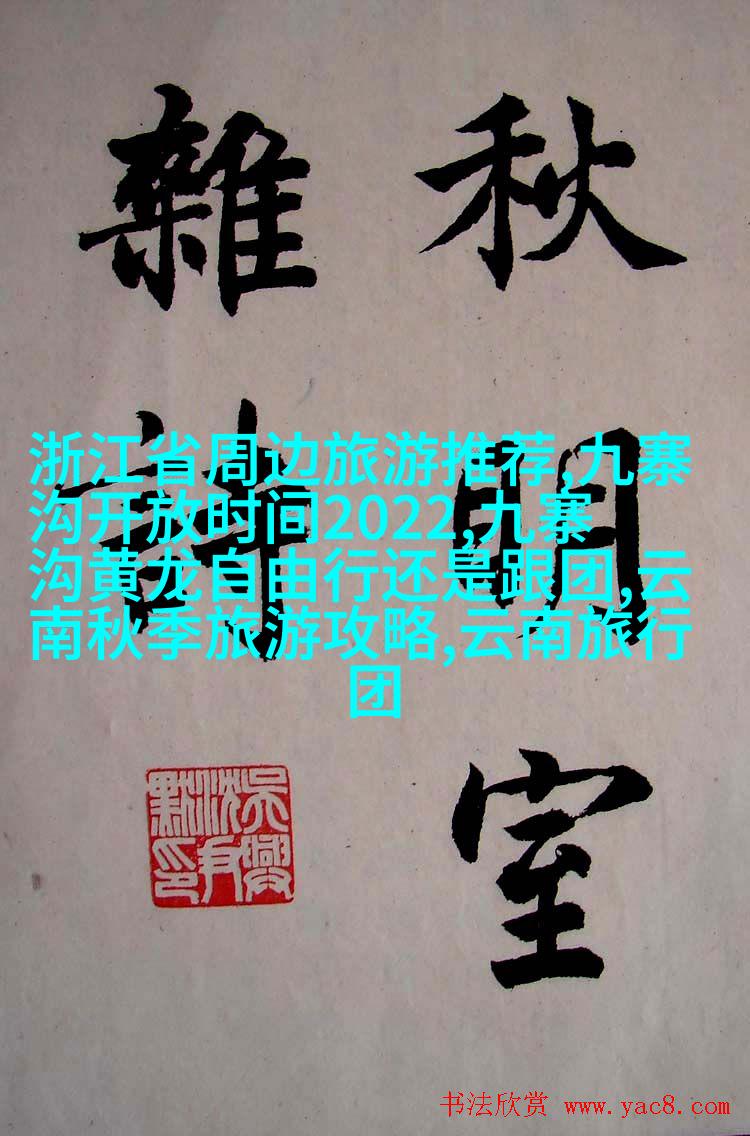 秋明室
雜詩
浙江省周边旅游推荐,九寨
沟开放时间2022,九寨
沟黄龙自由行还是跟团,云
南秋季旅游攻略,云南旅行
团
吴兴沈尹默印
书法欣赏 www.yac8.com